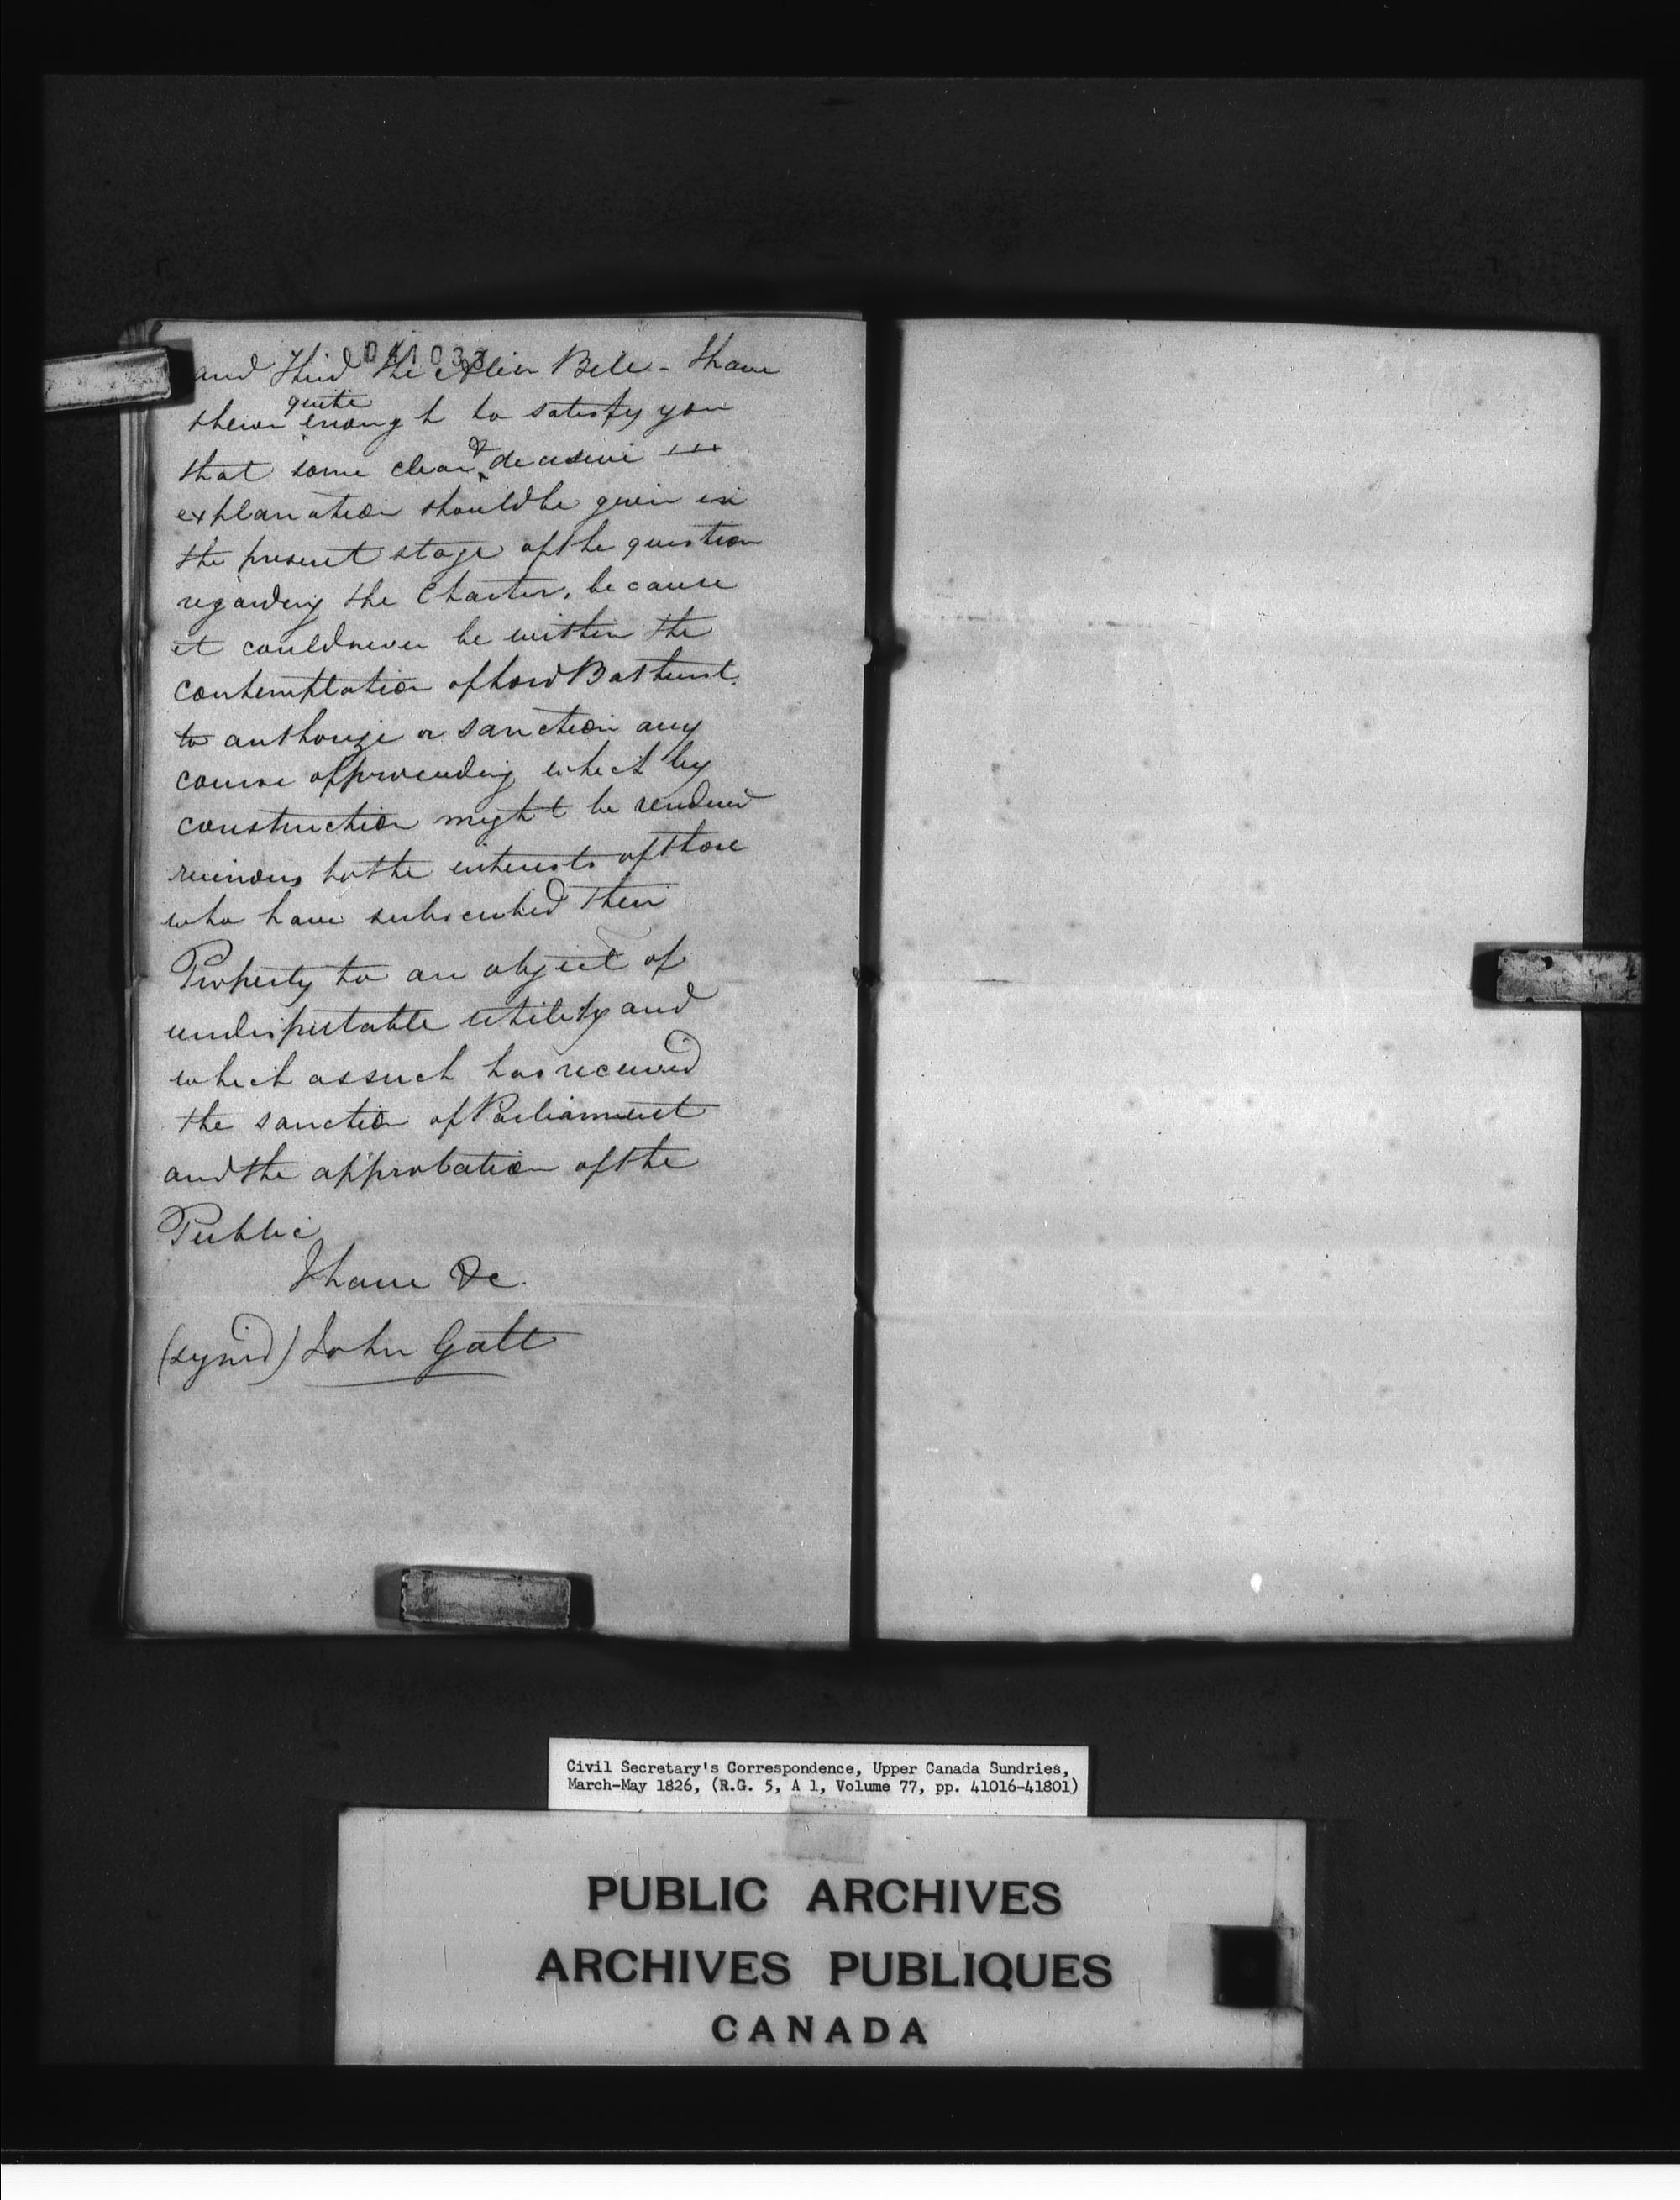 041033
and third the Alien Bill - I have
shewn quite enough to satisfy you
that some clear & decisive
explanation should be given in
the present stage of the question
regarding the Charter, because
it could never be within the
contemplation of Lord Bathurst
to authorize or sanction any
course of proceeding which by
construction might be rendered
ruinous to the interests of those
who have subscribed their
Property to an object of
undisputable utility and
which as such has received
the sanction of Parliament
and the approbation of the
Public
I have &c.
(signed) John Galt
Civil Secretary's Correspondence, Upper Canada Sundries,
March-May 1826, (R.G. 5, A 1, Volume 77, pp. 41016-41801)
PUBLIC ARCHIVES
ARCHIVES PUBLIQUES
CANADA